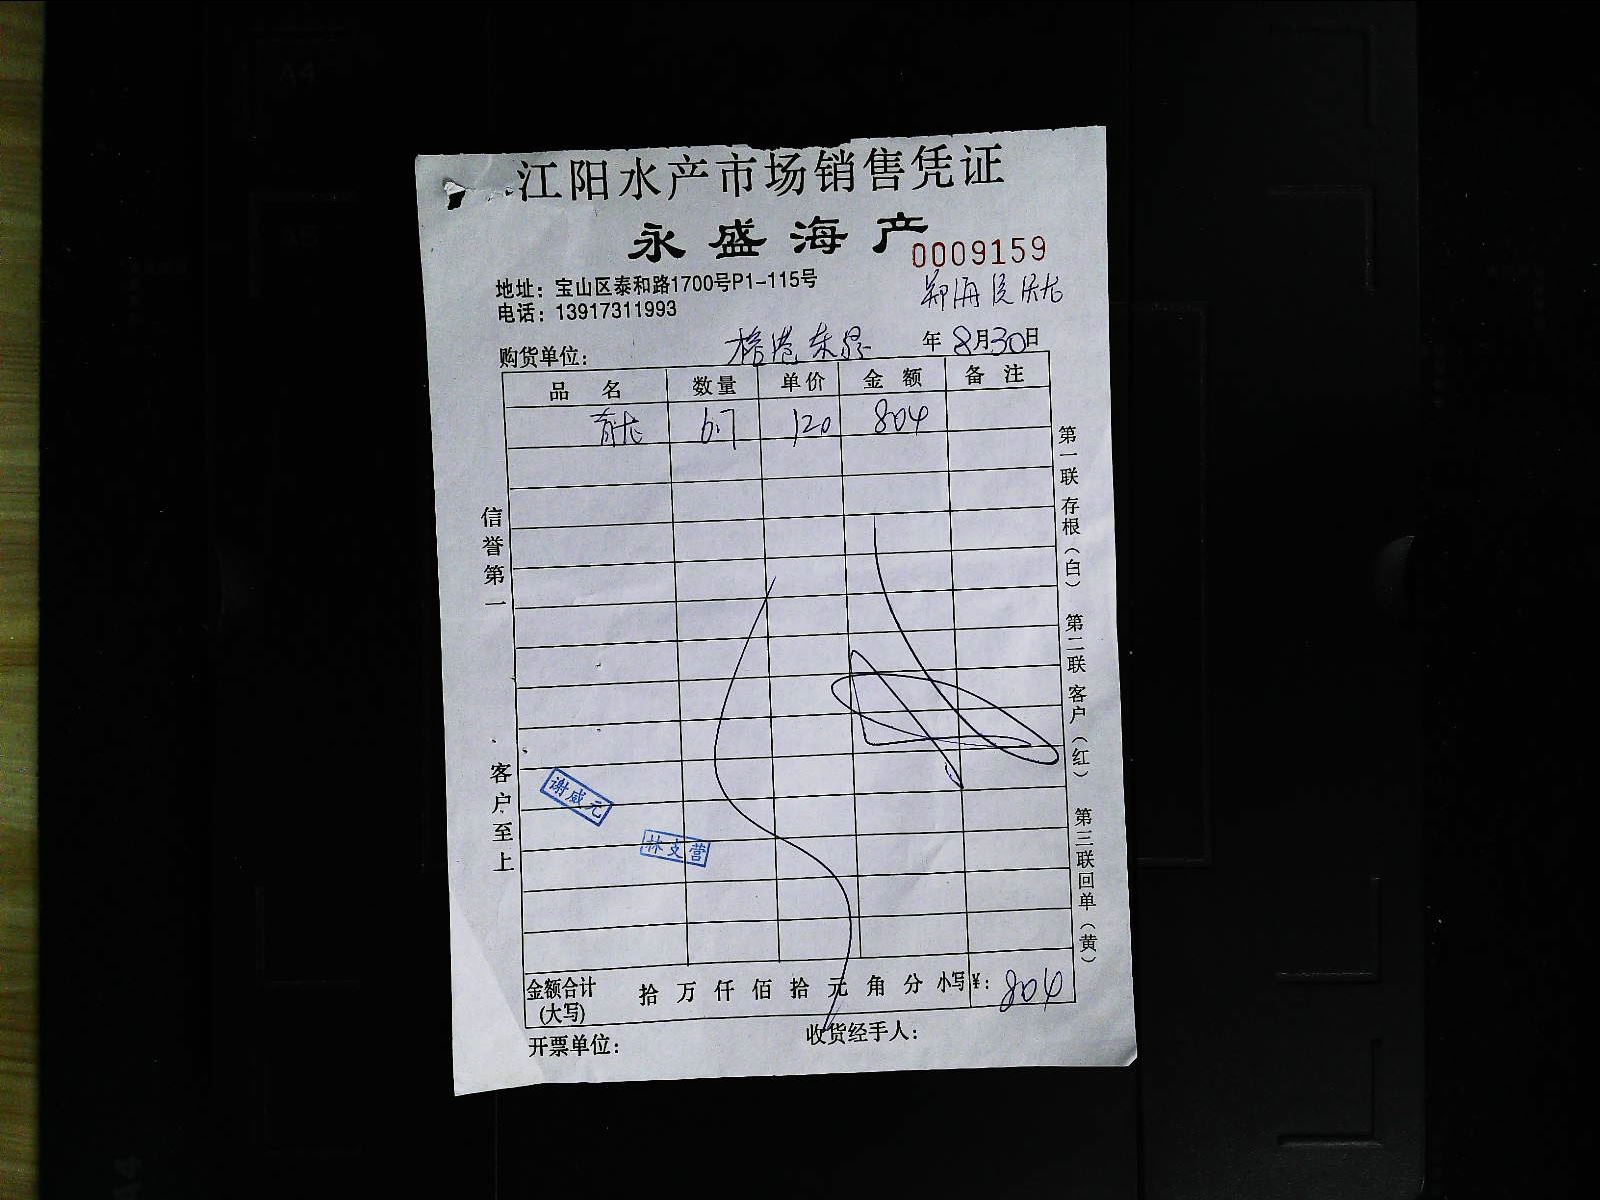 江阳水产市场销售凭证
永盛海产
0009159
地址：宝山区泰和路1700号P1-115号
电话：13917311993
购货单位：
年 8月30日
品名 数量 单价 金额 备注
青龙 6.7 120 804
信誉第一
客户至上
第一联 存根（白）
第二联 客户（红）
第三联 回单（黄）
谢咸元
林支营
金额合计（大写） 拾 万 仟 佰 拾 元 角 分 小写¥： 804
开票单位：
收货经手人：